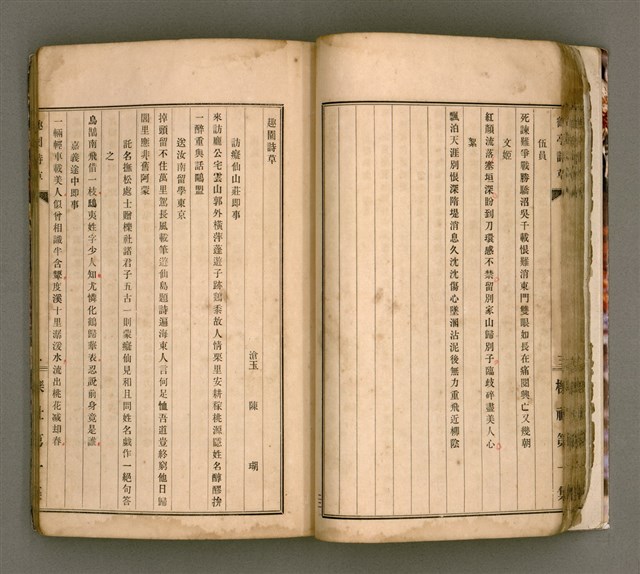 伍員
死諫難爭戰勝驕沼吳千載恨難消東門雙眼如長在痛閱興亡又幾朝
文姬
紅顏流落寒垣深盼到刀環感不禁留別家山歸別子臨歧碎盡美人心
絮
飄泊天涯別恨深隋堤消息久沈沈傷心墜溷沾泥後無力重飛近柳陰
櫟社第一集
趣園詩草
滄玉 陳瑚
訪癡仙山莊即事
來訪龐公宅雲山郭外橫萍蓬遊子跡雞黍故人情栗里安耕稼桃源隱姓名醇醪拚
一醉重與話鷗盟
送汝南留學東京
掉頭留不住萬里駕長風載筆遊仙島題詩遍海東人言何足恤吾道豈終窮他日歸
閭里應非舊阿蒙
託名撫松處士贈櫟社諸君子五古一則蒙癡仙見和且問姓名戲作一絕句答
之
烏鵲南飛借一枝鴟夷姓字少人知尤憐化鶴歸華表忍說前身竟是誰
嘉義途中即事
一輛輕車載美人似曾相識半含顰度溪十里潺湲水流出桃花減却春